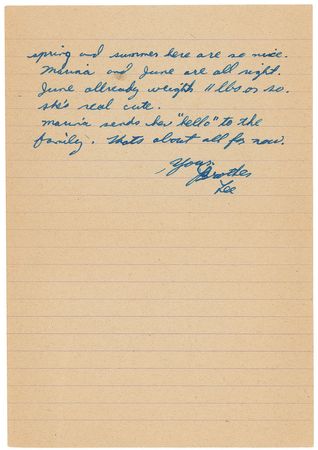 spring and summer here are so nice.
Marina and June are all right.
June allready weighth 11 lbs. or so.
she's real cute.
Marina sends her "hello" to the
family. thats about all for now.
Your
Brother
Lee